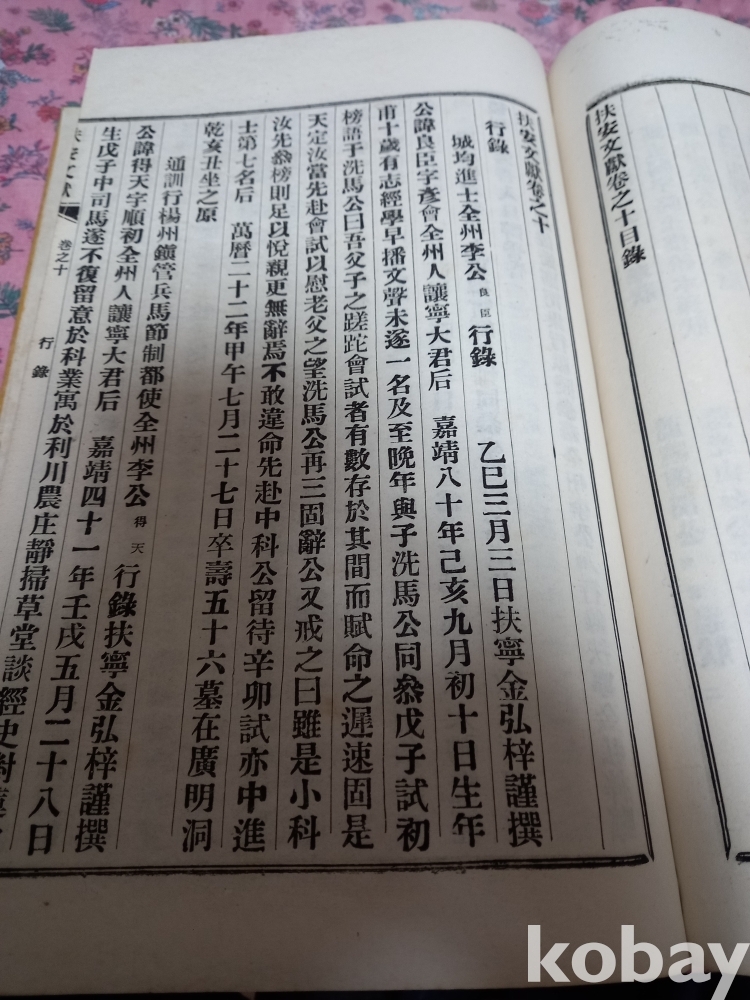 扶安文獻卷之十目錄
扶安文獻卷之十
行錄
城均進士全州李公良臣行錄 乙巳三月三日扶寧金弘梓謹撰
公諱良臣字彥會全州人讓寧大君后 嘉靖八十年己亥九月初十日生年
甫十歲有志經學早播文聲未遂一名及至晚年與子洗馬公同叅戊子試初
榜語于洗馬公曰吾父子之蹉跎會試者有數存於其間而賦命之遲速固是
天定汝當先赴會試以慰老父之望洗馬公再三固辭公又戒之曰雖是小科
汝先叅榜則足以悅親更無辭焉不敢違命先赴中科公留待辛卯試亦中進
士第七名后 萬曆二十二年甲午七月二十七日卒壽五十六墓在廣明洞
乾亥丑坐之原
通訓行楊州鎭管兵馬節制都使全州李公得天行錄扶寧金弘梓謹撰
公諱得天字順初全州人讓寧大君后 嘉靖四十一年壬戌五月二十八日
生戊子中司馬遂不復留意於科業寓於利川農庄靜掃草堂談經史
安文獻 卷之十 行錄
kobay